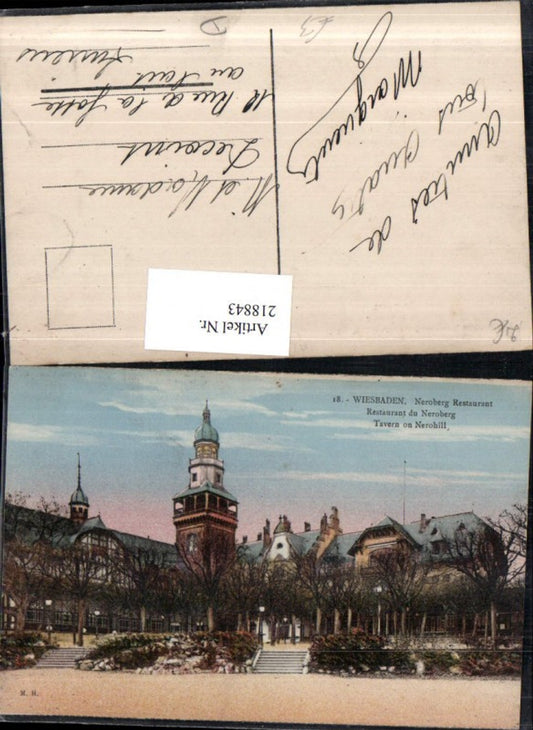 amitiés de
tous
Marguerite
M et Madame
Decoint
11 Rue de la
au
Amiens
D
Artikel Nr.
218843
18. - WIESBADEN. Neroberg Restaurant
Restaurant du Neroberg
Tavern on Nerohill.